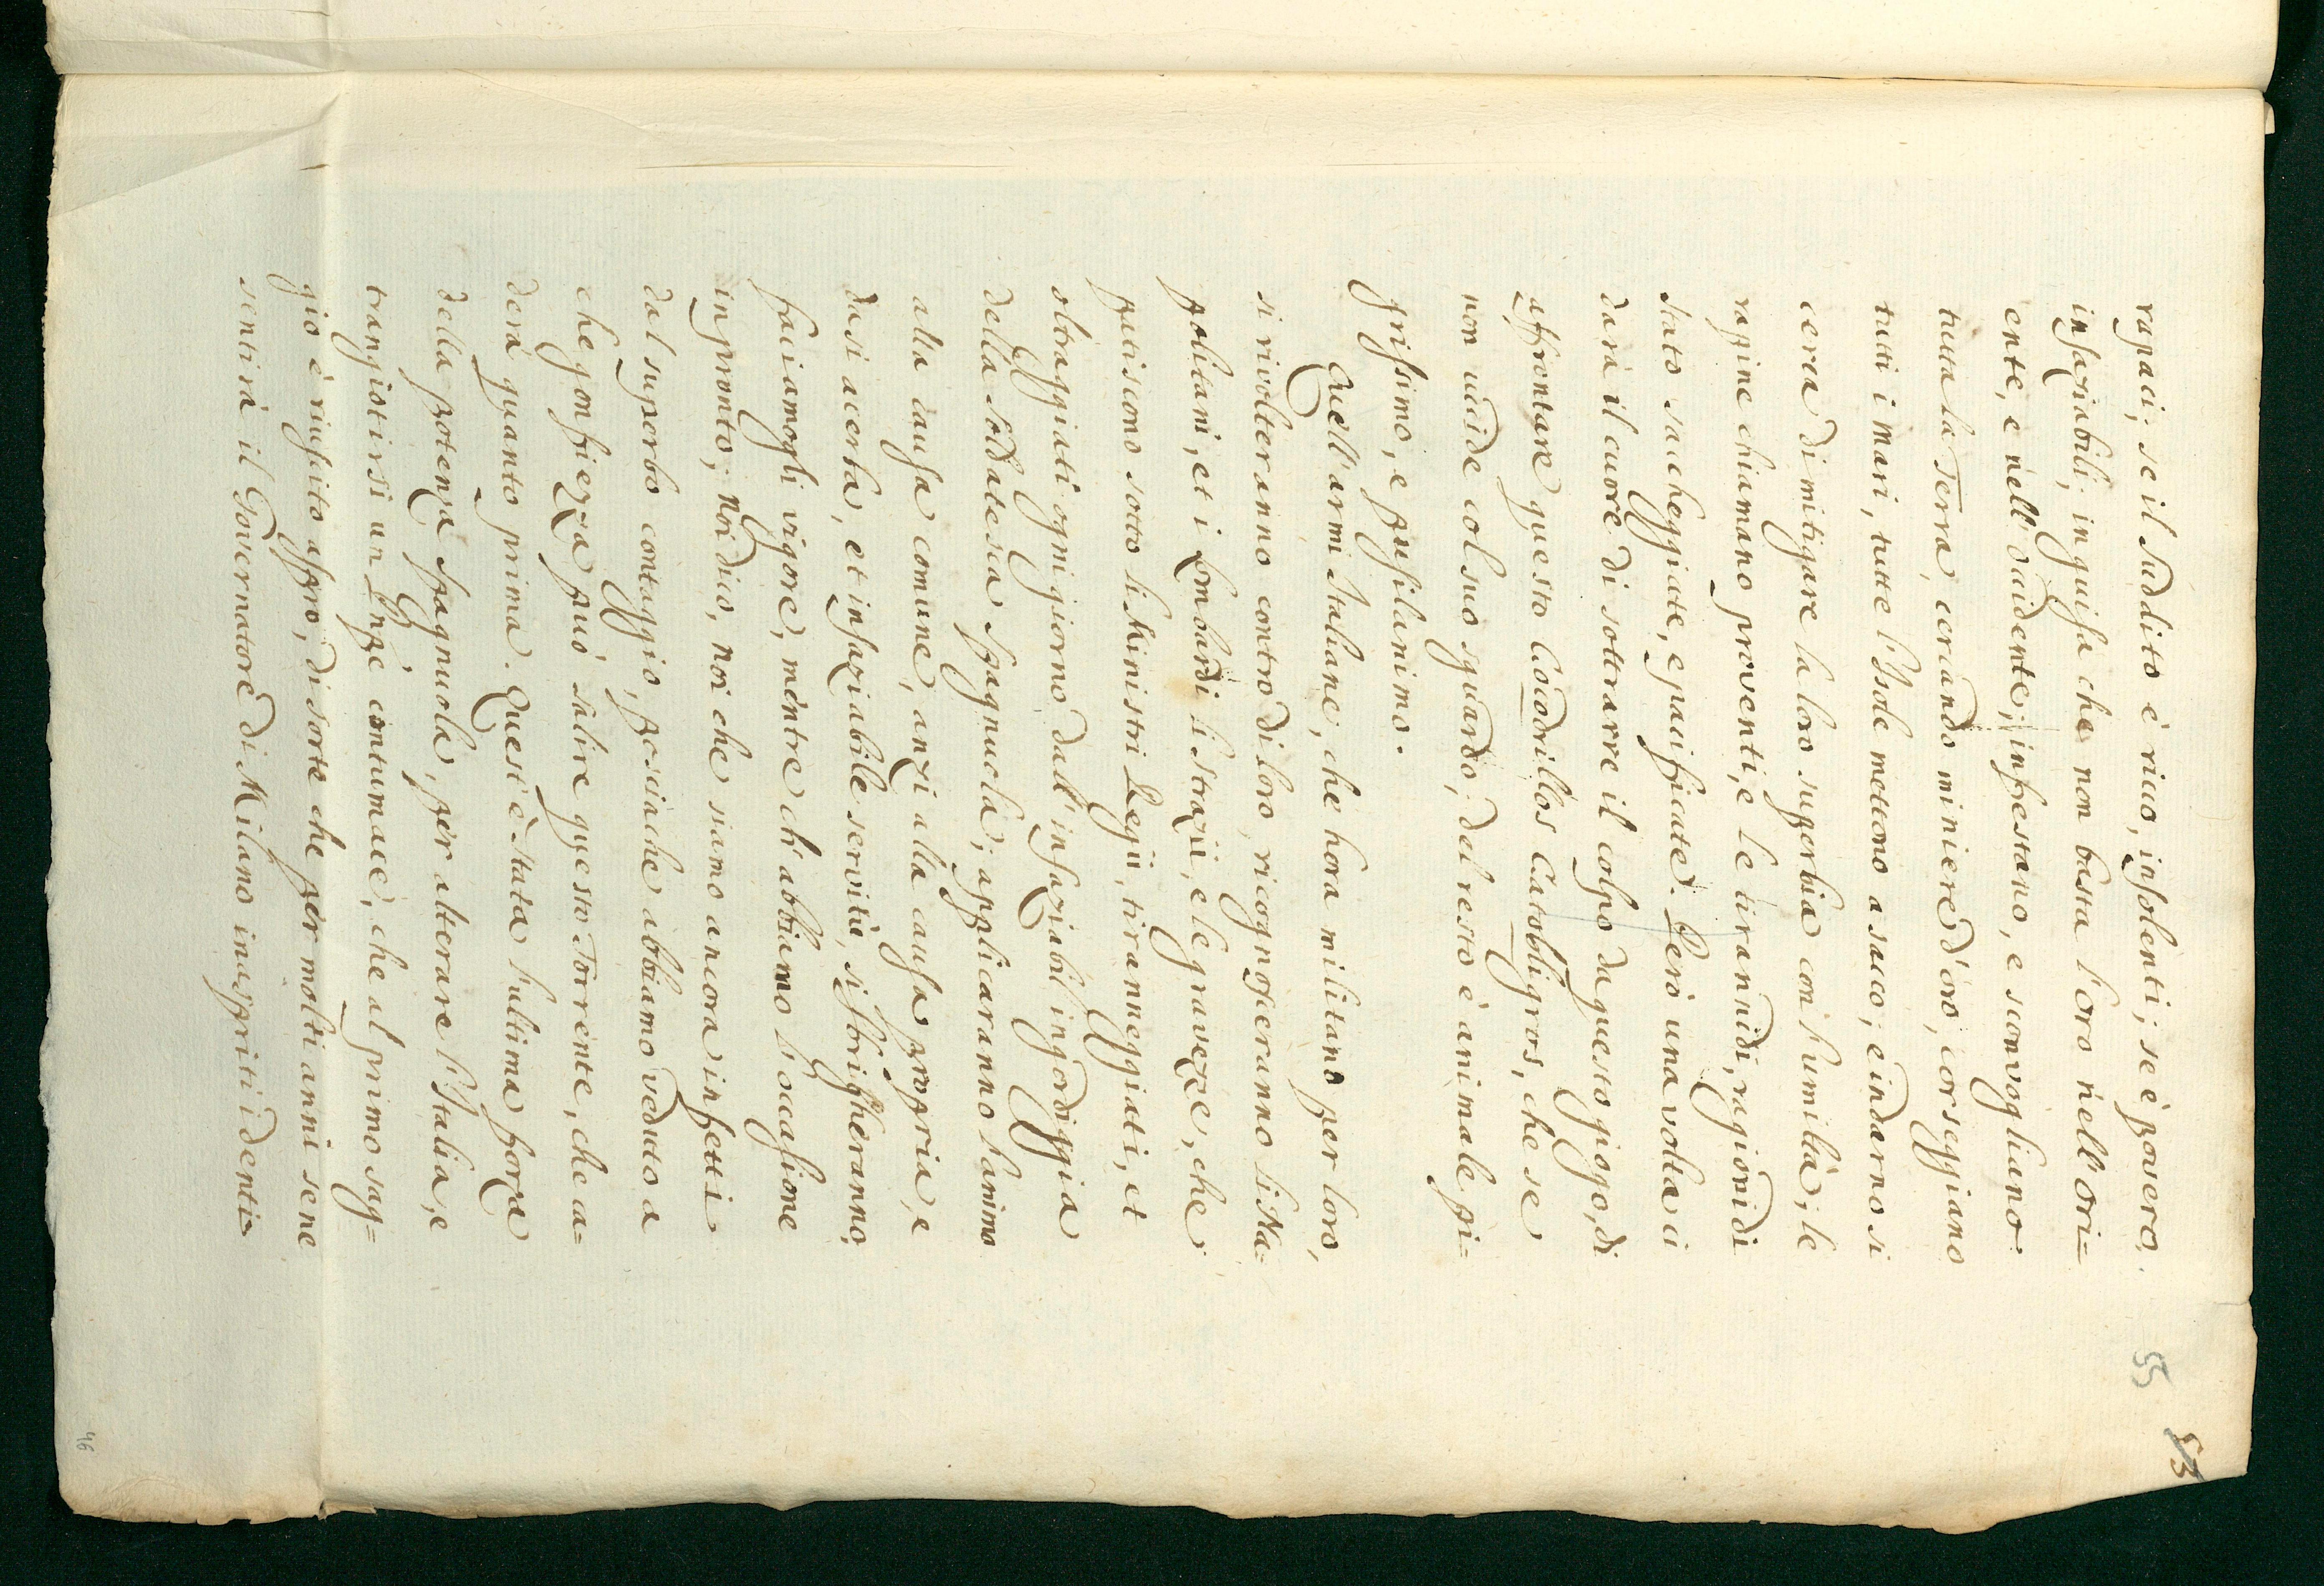 55
53
rapaci; se il suddito è ricco, insolenti; se è povero,
insaziabili; in guisa che non basta l'oro nell'ori=
ente, e nell'occidente; infestano, e sconvogliano
tutta la Terra, cercando miniere d'oro, corseggiano
tutti i mari, tutte l'Isole mettono a sacco; e indarno si
cerca di mitigare la loro superbia con l'umiltà; le
rapine chiamano proventi, e le tirannidi, ragioni di
stato saccheggiate, e pacificate. Però una volta ci
darà il cuore di sottrarre il colpo da questo giogo, di
affrontare questo Cocodrillos Catobligros, che se
non uccide col suo sguardo, del resto è animale pi=
grissimo, e pusilanimo.
Quell'armi Italiane, che hora militano per loro,
si rivolteranno contro di loro, ricognosceranno li Na=
politani, et i Lombardi li strazii, e le gravezze, che
patiscono sotto li Ministri Regii, tiranneggiati, et
oltraggiati ogni giorno dall'insaziabil ingordiggia
della soldatesca spagnuola; applicaranno l'animo
alla causa comune, anzi alla causa propria, e
da si acerba, et insaziabile servitù, si sbrigheranno;
facciamogli vigore, mentre ch'abbiamo l'occasione
in pronto; noi dico, noi che siamo ancora infetti
dal superbo contaggio, posciache abbiamo veduto a
che gonfiezza può salire questo Torrente, che ca=
derà quanto prima. Quest'è stata l'ultima forza
della potenza spagnuola, per alterare l'Italia, e
trangiotirsi un Prpe contumace, che al primo sag=
gio è riuscito aspro, di sorte che per molti anni sene
sentirà il Governatore di Milano inaspriti i denti
46